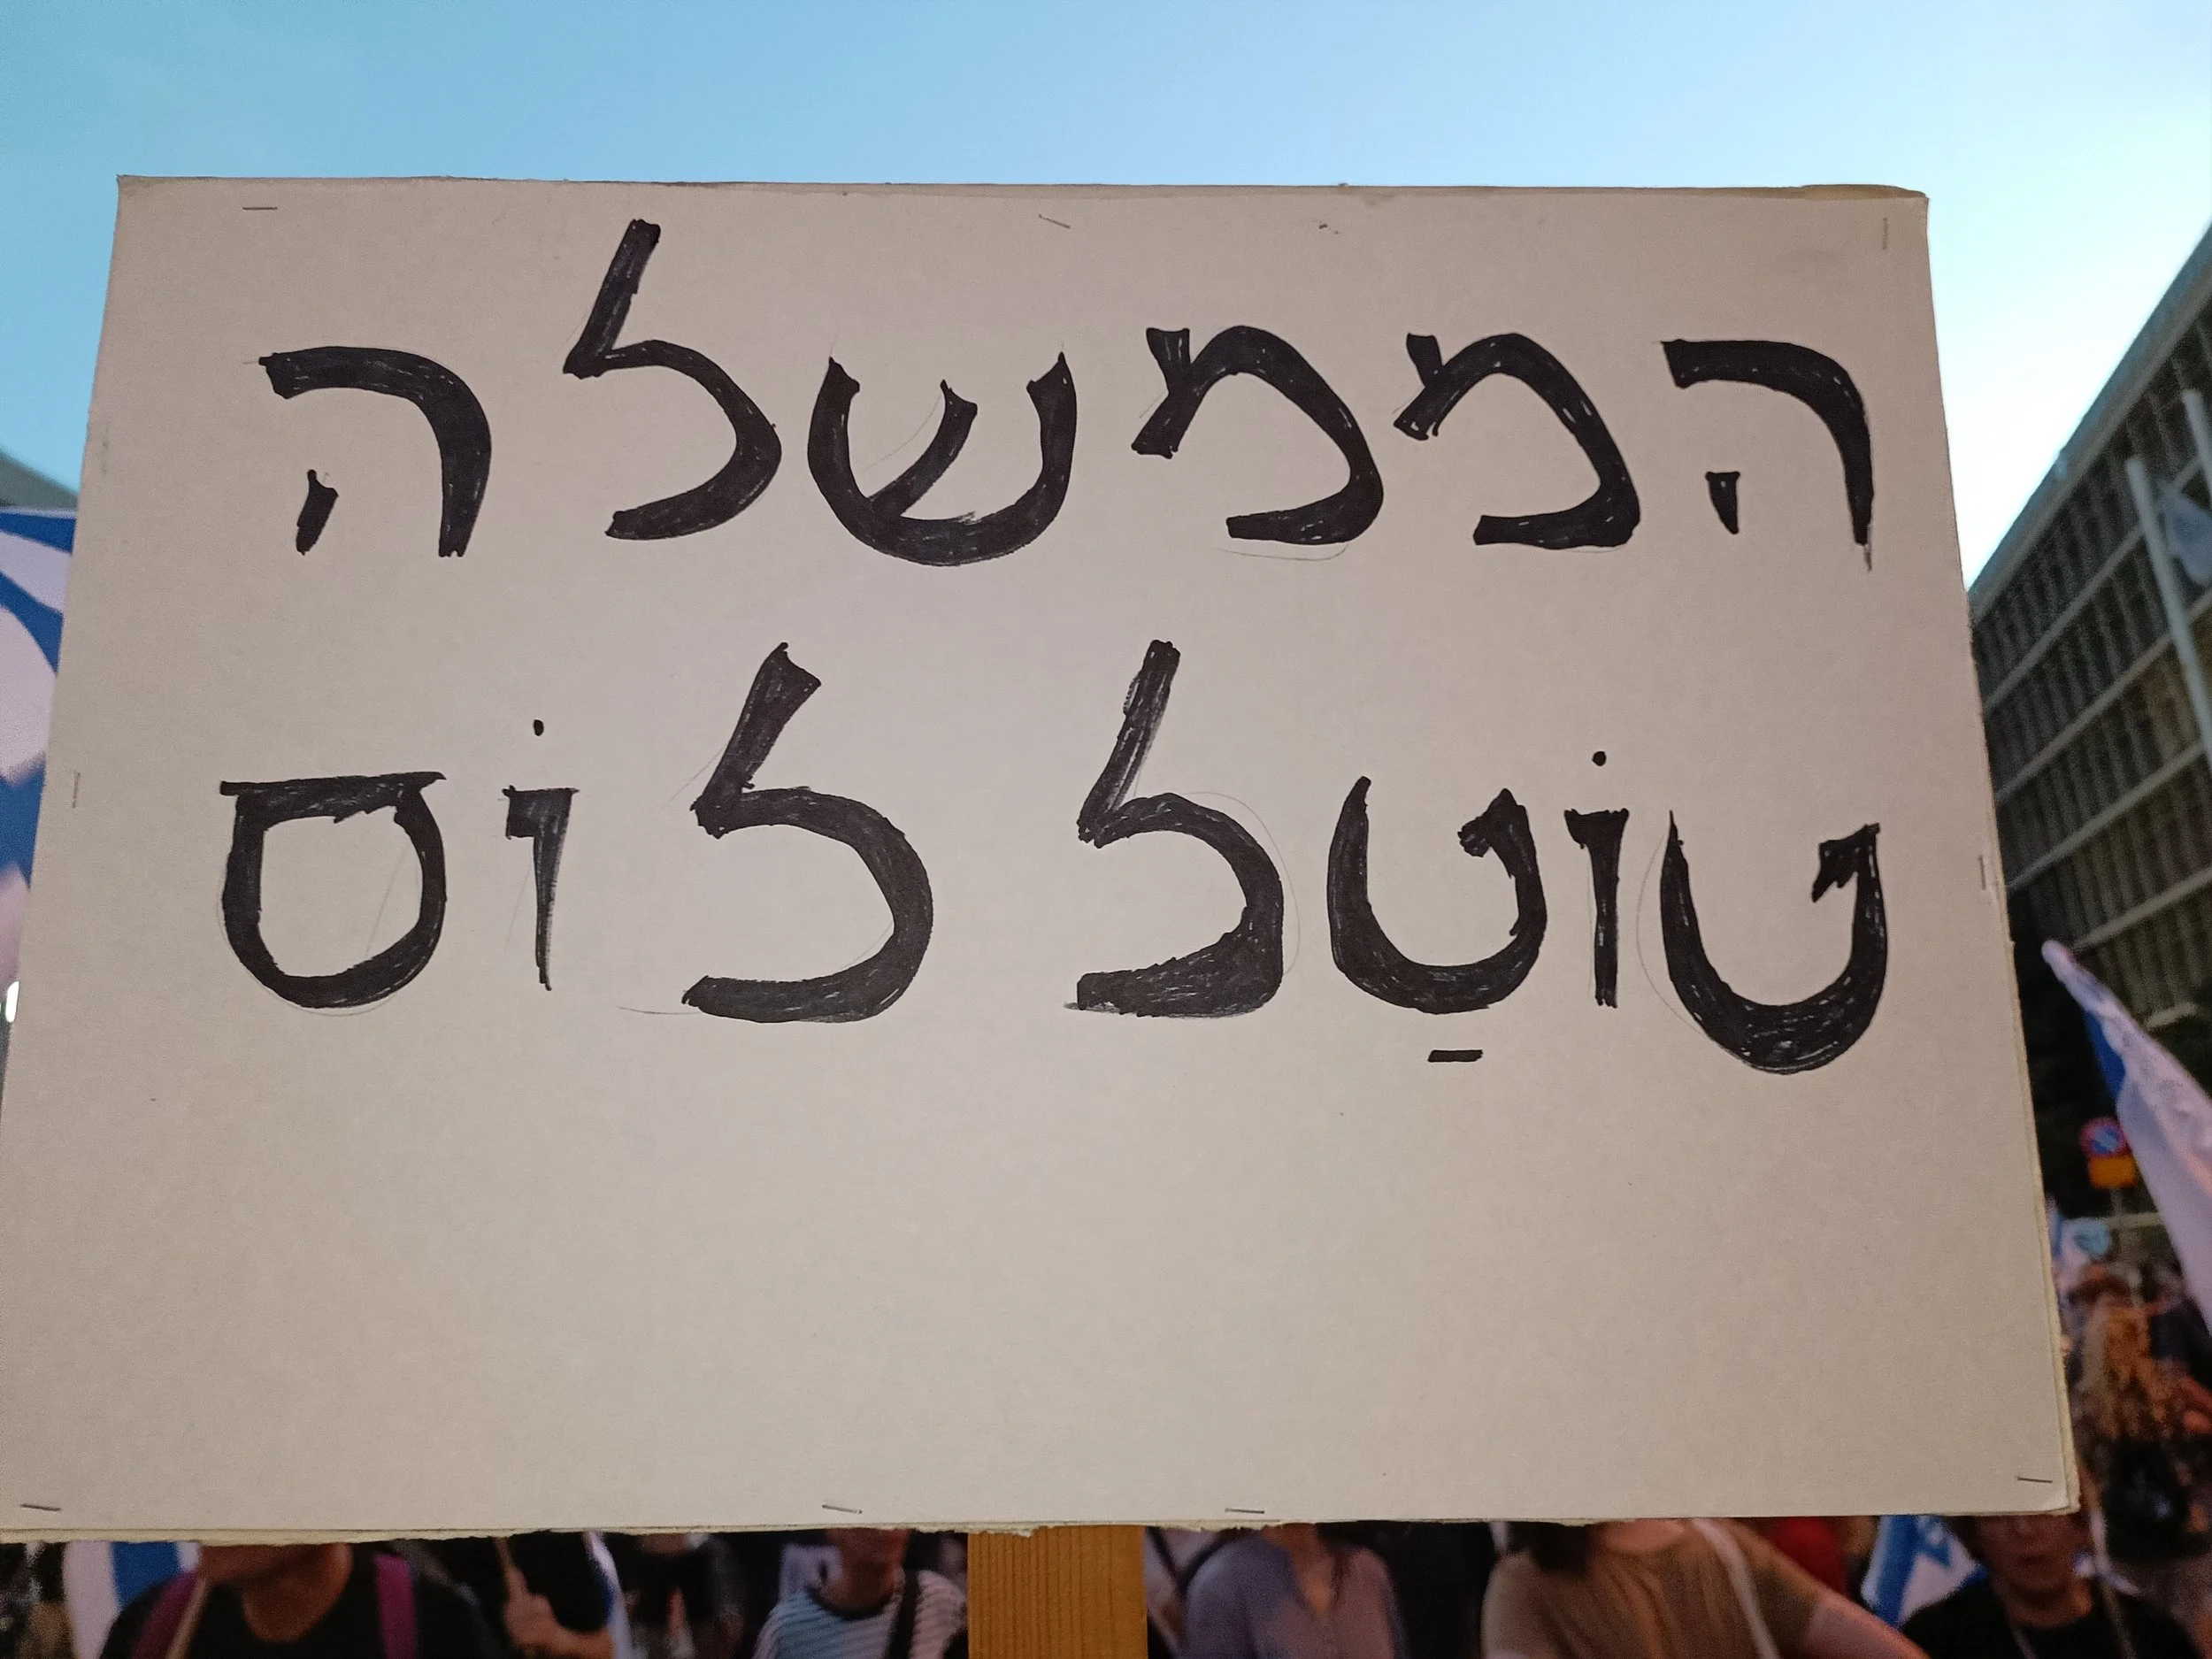 הממשלה
טוֹטַל לוֹס